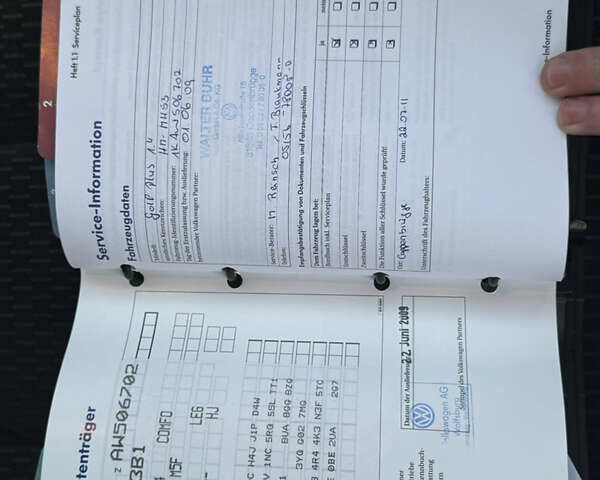 Heft 1.1 Serviceplan
2
Service-Information
Fahrzeugdaten
Modell: Golf Plus 1.4
HM-MH 53
Fahrzeug-Identifizierungsnummer: 1K AW506702
Tag der Erstzulassung bzw. Auslieferung: 01 06 09
Volkswagen Partner:
WALTER BUHR
Service-Berater: M Ränsch / T. Blankmann
Telefon: 05156-78007-0
Empfangsbestätigung von Dokumenten und Fahrzeugschlüsseln
Dem Fahrzeug lagen bei:
ja
nein
Bordbuch inkl. Serviceplan
Die Funktion aller Schlüssel wurde geprüft!
Ort: Coppenbrügge Datum: 22.07.11
Unterschrift des Fahrzeughalters:
Service-Information
tenträger
Z AW506702
3B1
COMFO
M5F LEG
HJ
C H4J J1P D4W
V 1NC 5RQ 5SL TT1
1 8UA 8Q9 8ZQ
3YQ Q02 7MG
3 4R4 4K3 N3F 5TC
E 0BE 2UA 2G7
Datum der Auslieferung
22. Juni 2009
Volkswagen AG
Wolfsburg
Stempel des Volkswagen Partners